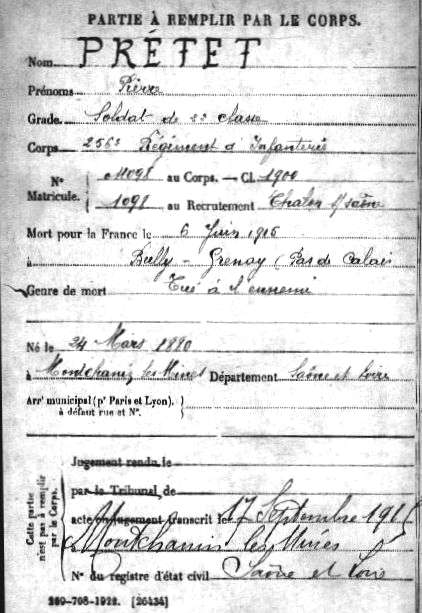 PARTIE À REMPLIR PAR LE CORPS.
Nom PRÉTET
Prénoms Pierre
Grade Soldat de 2e classe
Corps 256e Régiment d'Infanterie
N° Matricule. { 04098 au Corps. — Cl. 1900
1098 au Recrutement Chalon s/ saône
Mort pour la France le 6 Juin 1915
à Bully - Grenay (Pas de Calais
Genre de mort Tué à l'ennemi
Né le 24 Mars 1880
à Montchanin les Mines Département Saône et Loire
Arrt municipal (pr Paris et Lyon), à défaut rue et N°. }
Cette partie n'est pas à remplir par le Corps. {
Jugement rendu le
par le Tribunal de
acte ou jugement transcrit le 17 Septembre 1915
à Montchanin les Mines
N° du registre d'état civil Saône et Loire